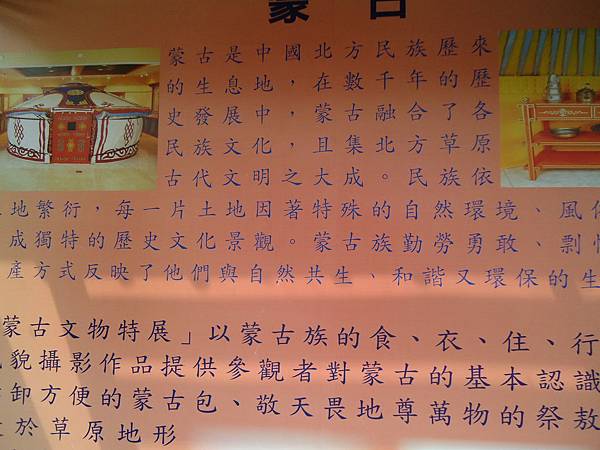 蒙古
蒙古是中國北方民族歷來
的生息地，在數千年的歷
史發展中，蒙古融合了各
民族文化，且集北方草原
古代文明之大成。民族依
地繁衍，每一片土地因著特殊的自然環境、風
成獨特的歷史文化景觀。蒙古族勤勞勇敢、剽
產方式反映了他們與自然共生、和諧又環保的生
蒙古文物特展」以蒙古族的食、衣、住、行
貌攝影作品提供參觀者對蒙古的基本認識
卸方便的蒙古包、敬天畏地尊萬物的祭敖
於草原地形